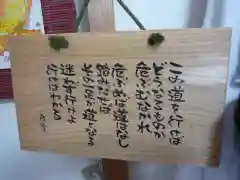 この道を行けば
どうなるものか
危ぶむなかれ
危ぶめば道はなし
踏み出せば
その一足が道となる
迷わず行けよ
行けばわかる